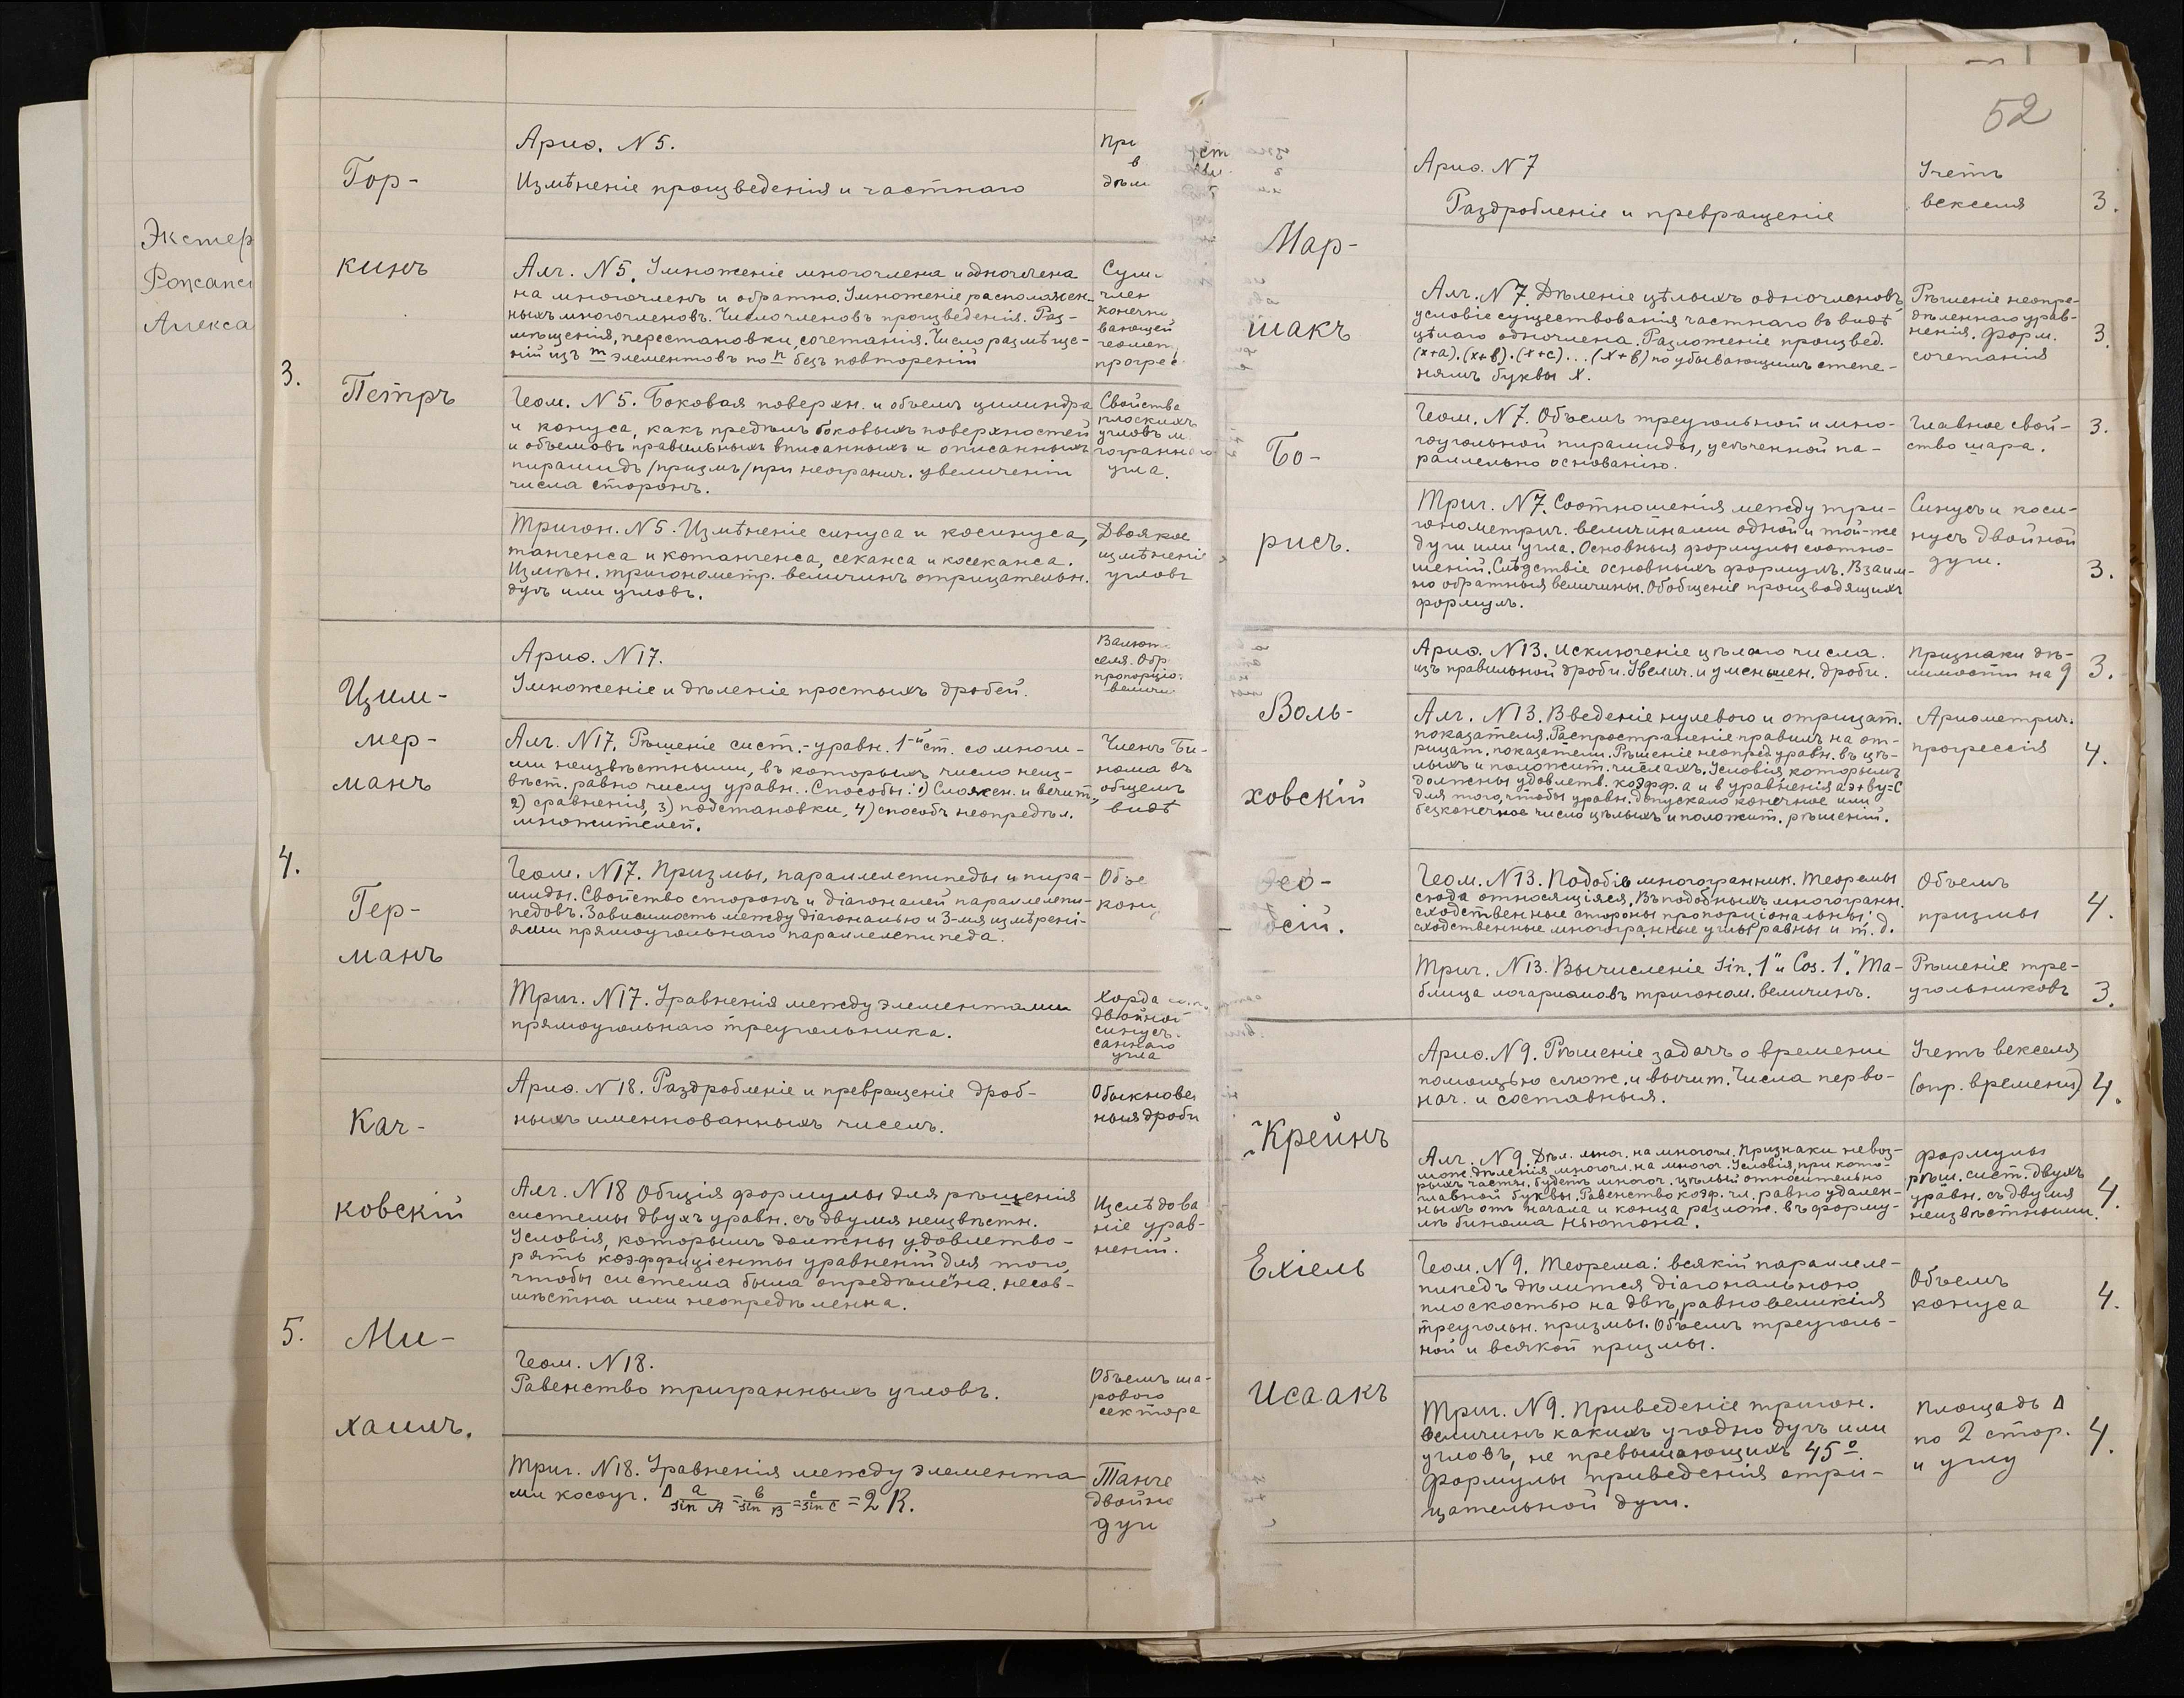 Экстер
Рожанс
Алекса
3.
Гор-
кинъ
Петръ
Ариѳ. N 5.
Измѣненіе произведенія и частнаго
При
в
дѣли
Алг. N 5. Умноженіе многочлена и одночлена
на многочленъ и обратно. Умноженіе расположен-
ныхъ многочленовъ. Число членовъ произведенія. Раз-
мѣщенія, перестановки, сочетанія. Число размѣще-
ній изъ m элементовъ по n безъ повтореній
Сум
член
конечн
вающей
геомет
прогрес
Геом. N 5. Боковая поверхн. и объемъ цилиндра
и конуса, какъ предѣлъ боковыхъ поверхностей
и объемовъ правильныхъ вписанныхъ и описанныхъ
пирамидъ /призмъ/ при неогранич. увеличеніи
числа сторонъ.
Свойства
плоскихъ
угловъ м
гогранна
угла.
Тригон. N 5. Измѣненіе синуса и косинуса,
тангенса и котангенса, секанса и косеканса.
Измѣн. тригонометр. величинъ отрицательн.
дугъ или угловъ.
Двоякое
измѣненіе
угловъ
4.
Цим-
мер-
манъ
Гер-
манъ
Ариѳ. N 17.
Умноженіе и дѣленіе простыхъ дробей.
Валют
селя. Обр
пропорціо
величи
Алг. N 17. Рѣшеніе сист. уравн. 1-й ст. со многи-
ми неизвѣстными, въ которыхъ число неиз-
вѣст. равно числу уравн. Способы: 1) Сложен. и вычит.,
2) сравненія, 3) подстановки, 4) способъ неопредѣл.
множителей.
Членъ Би-
нома въ
общемъ
видѣ
Геом. N 17. Призмы, параллелепипеды и пира-
миды. Свойство сторонъ и діагоналей параллелепи-
педовъ. Зависимость между діагональю и 3-мя измѣрені-
ями прямоугольнаго параллелепипеда.
Объе
кону
Триг. N 17. Уравненія между элементами
прямоугольнаго треугольника.
Хорда
двойной
синусъ
саннаго
угла
5.
Кач-
ковскій
Ми-
хаилъ.
Ариѳ. N 18. Раздробленіе и превращеніе дроб-
ныхъ именнованныхъ чиселъ.
Обыкнове
ныя дроби
Алг. N 18 Общія формулы для рѣшенія
системы двухъ уравн. съ двумя неизвѣстн.
Условія, которымъ должны удовлетво-
рять коэффиціенты уравненій для того,
чтобы система была опредѣлена, несов-
мѣстна или неопредѣленна.
Изслѣдова
ніе урав-
неній.
Геом. N 18.
Равенство тригранныхъ угловъ.
Объемъ ша-
рового
сектора
Триг. N 18. Уравненія между элемента
ми косоуг. Δ a/sin A = b/sin B = c/sin C = 2 R.
Танге
двойно
дуги
52
Мар-
шакъ
Бо-
рисъ.
Ариѳ. N 7
Раздробленіе и превращеніе
Учетъ
векселя
3.
Алг. N 7. Дѣленіе цѣлыхъ одночленовъ
условіе существованія частнаго въ видѣ
цѣлаго одночлена. Разложеніе произвед.
(x+a).(x+b).(x+c)...(x+b) по убывающимъ степе-
нямъ буквы X.
Рѣшеніе неопре-
дѣленнаго урав-
ненія. Форм.
сочетанія
3.
Геом. N 7. Объемъ треугольной и мно-
гоугольной пирамиды, усѣченной па-
раллельно основанію.
Главное свой-
ство шара.
3.
Триг. N 7. Соотношенія между три-
гонометрич. величинами одной и той-же
дуги или угла. Основныя формулы соотно-
шеній. Слѣдствіе основныхъ формулъ. Взаим-
но обратныя величины. Обобщеніе производящихъ
формулъ.
Синусъ и коси-
нусъ двойной
дуги.
3.
Воль-
ховскій
Ѳео-
осій.
Ариѳ. N 13. Исключеніе цѣлаго числа
изъ правильной дроби. Увелич. и уменьшен. дроби.
Признаки дѣ-
лимости на 9
3.
Алг. N 13. Введеніе нулевого и отрицат.
показателя. Распространеніе правилъ на от-
рицат. показатели. Рѣшеніе неопред. уравн. въ цѣ-
лыхъ и положит. числахъ. Условія, которымъ
должны удовлетв. коэфф. а и в уравненія ах+ву=с
для того, чтобы уравн. допускало конечное или
безконечное число цѣлыхъ и положит. рѣшеній.
Ариѳметрич.
прогрессія
4.
Геом. N 13. Подобіе многогранник. Теоремы
сюда относящіяся. Въ подобныхъ многогранн.
сходственные стороны пропорціональны;
сходственные многогранные углы равны и т. д.
Объемъ
призмы
4.
Триг. N 13. Вычисленіе Sin. 1" и Cos. 1." Та-
блица логариѳмовъ тригоном. величинъ.
Рѣшеніе тре-
угольниковъ
3.
Крейнъ
Ехіель
Исаакъ
Ариѳ. N 9. Рѣшеніе задачъ о времени
помощью слож. и вычит. Числа перво-
нач. и составныя.
Учетъ векселя
(опр. времени)
4.
Алг. N 9. Дѣл. мног. на многочл. Признаки невоз-
мож. дѣленія многочл. на многоч. Условія, при кото-
рыхъ частн. будетъ многоч. цѣлый относительно
главной буквы. Равенство коэф. чл. равно удален-
ныхъ отъ начала и конца разлож. въ форму-
лѣ бинома Ньютона.
формулы
рѣш. сист. двухъ
уравн. съ двумя
неизвѣстными.
4.
Геом. N 9. Теорема: всякій параллеле-
пипедъ дѣлится діагональною
плоскостью на двѣ равновеликія
треугольн. призмы. Объемъ треуголь-
ной и всякой призмы.
Объемъ
конуса
4.
Триг. N 9. Приведеніе тригон.
величинъ какихъ угодно дугъ или
угловъ, не превышающихъ 45°.
Формулы приведенія отри-
цательной дуги.
Площадь Δ
по 2 стор.
и углу
4.